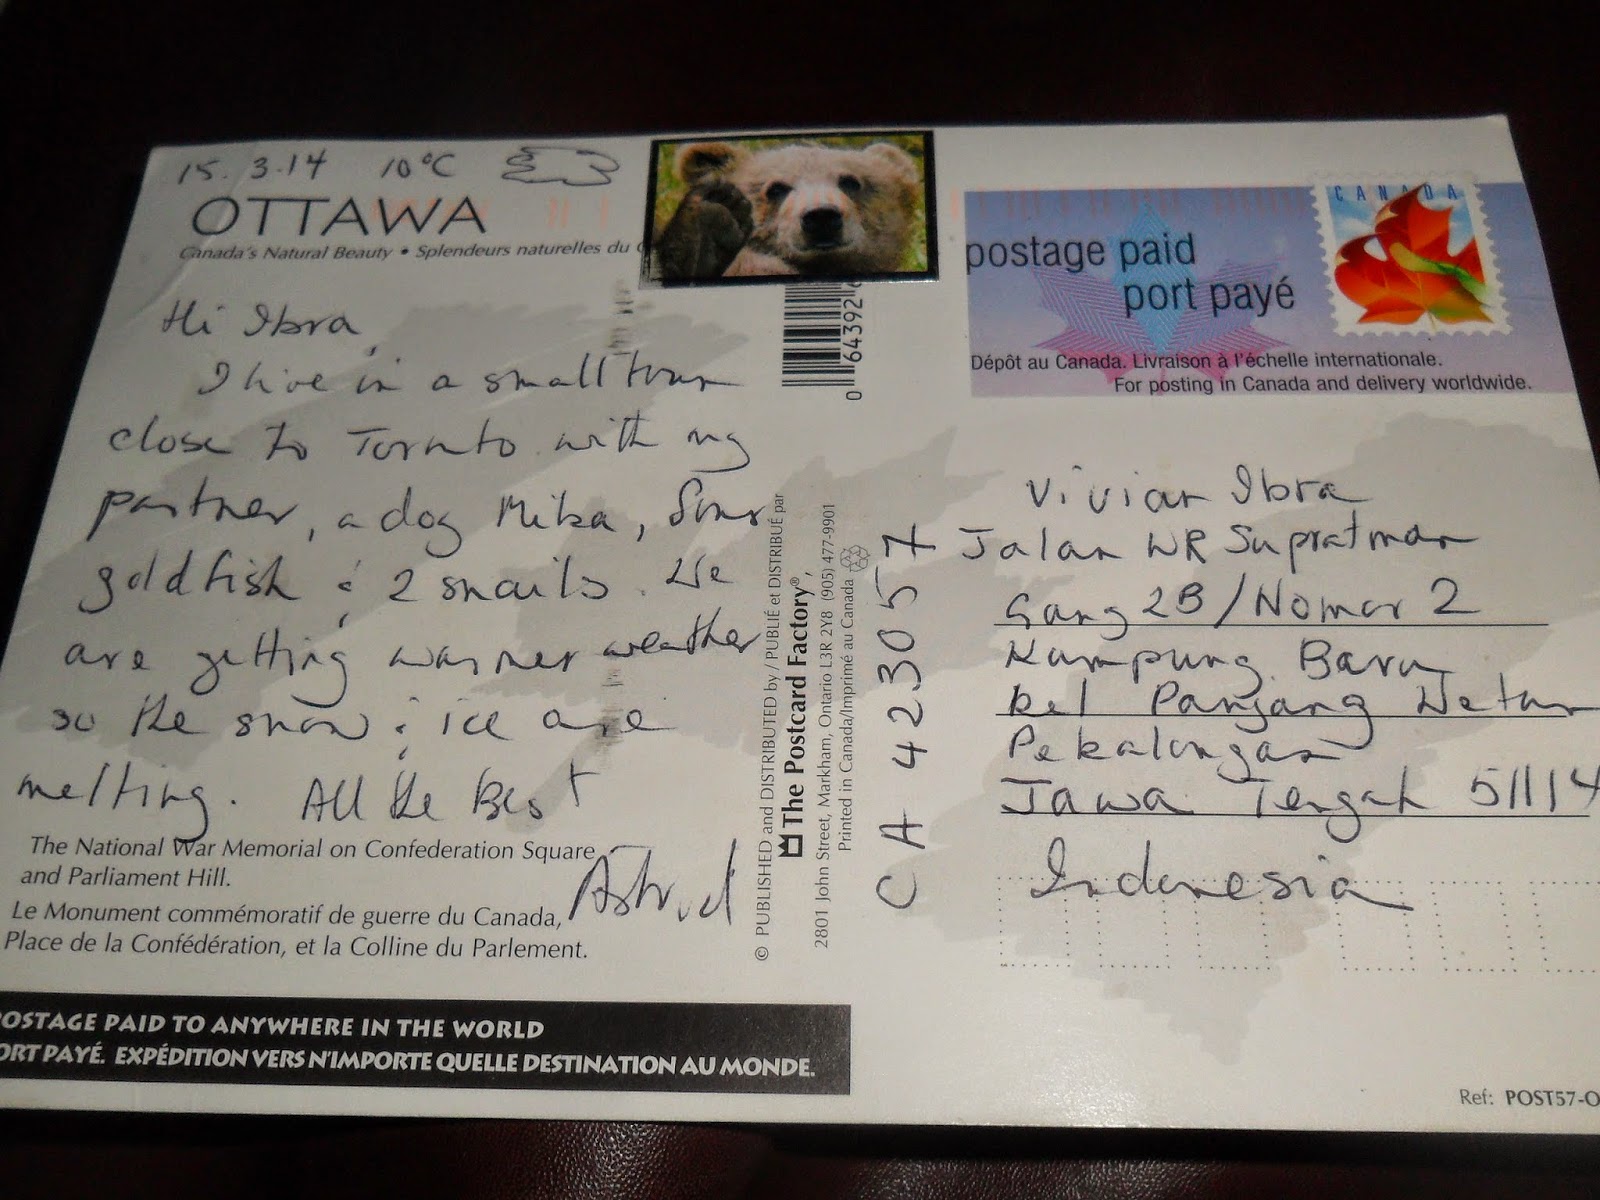 15.3.14 10°C
OTTAWA
Canada's Natural Beauty • Splendeurs naturelles du
Hi Ibra,
I live in a small town
close to Toronto with my
partner, a dog Mika, some
goldfish & 2 snails. We
are getting warmer weather
so the snow & ice are
melting. All the Best
Astrid
The National War Memorial on Confederation Square
and Parliament Hill.
Le Monument commémoratif de guerre du Canada,
Place de la Confédération, et la Colline du Parlement.
POSTAGE PAID TO ANYWHERE IN THE WORLD
PORT PAYÉ. EXPÉDITION VERS N'IMPORTE QUELLE DESTINATION AU MONDE.
0 64392
© PUBLISHED and DISTRIBUTED by / PUBLIÉ et DISTRIBUÉ par
The Postcard Factory®,
2801 John Street, Markham, Ontario L3R 2Y8 (905) 477-9901
Printed in Canada/Imprimé au Canada
CA 423057
postage paid
port payé
CANADA
Dépôt au Canada. Livraison à l'échelle internationale.
For posting in Canada and delivery worldwide.
Vivian Ibra
Jalan WR Supratman
Gang 2B/Nomor 2
Kampung Baru
kel Panjang Wetan
Pekalongan
Jawa Tengah 51114
Indonesia
Ref: POST57-O